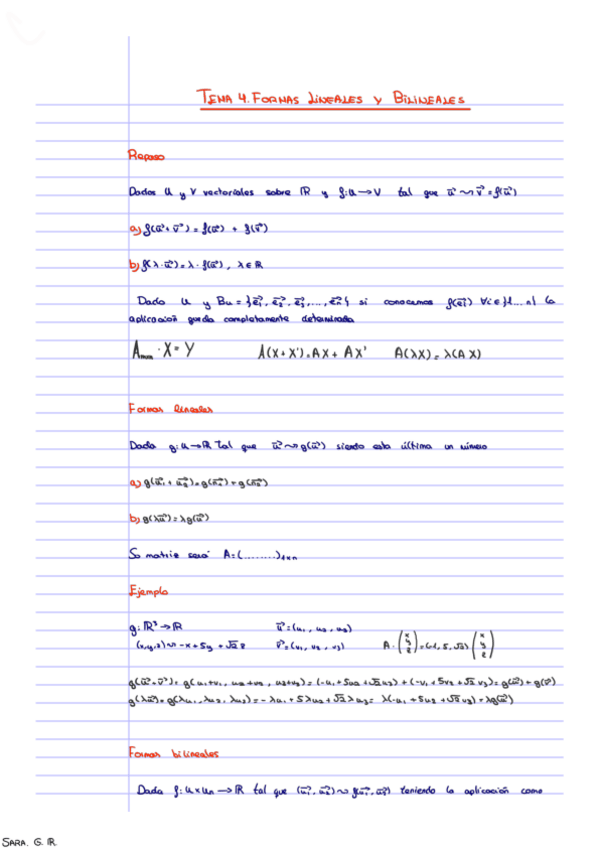 TEMA 4. FORMAS LINEALES Y BILINEALES
Repaso
Dados U y V vectoriales sobre ℝ y f: U → V tal que u⃗ ⤳ v⃗ = f(u⃗)
a) f(u⃗ + v⃗) = f(u⃗) + f(v⃗)
b) f(λ · u⃗) = λ · f(u⃗), λ ∈ ℝ
Dado U y Bu = {e⃗₁, e⃗₂, e⃗₃, ..., e⃗ₙ} si conocemos f(e⃗i) ∀i ∈ {1 ... n} la
aplicación queda completamente determinada
Aₘₓₙ · X = Y A(X + X') = AX + AX' A(λX) = λ(AX)
Formas lineales
Dada g: U → ℝ tal que u⃗ ⤳ g(u⃗) siendo esta última un número
a) g(u⃗₁ + u⃗₂) = g(u⃗₁) + g(u⃗₂)
b) g(λu⃗) = λg(u⃗)
Su matriz será A = (........)₁ₓₙ
Ejemplo
g: ℝ³ → ℝ u⃗ = (u₁, u₂, u₃)
(x,y,z) ⤳ -x + 5y + √2 z v⃗ = (v₁, v₂, v₃) A · (x y z) = (-1, 5, √2) (x y z)
g(u⃗ + v⃗) = g(u₁+v₁, u₂+v₂, u₃+v₃) = (-u₁ + 5u₂ + √2 u₃) + (-v₁ + 5v₂ + √2 v₃) = g(u⃗) + g(v⃗)
g(λu⃗) = g(λu₁, λu₂, λu₃) = -λu₁ + 5λu₂ + √2 λu₃ = λ(-u₁ + 5u₂ + √2 u₃) = λg(u⃗)
Formas bilineales
Dada f: U × U → ℝ tal que (u⃗₁, u⃗₂) ⤳ f(u⃗₁, u⃗₂) teniendo la aplicación como
SARA. G. R.